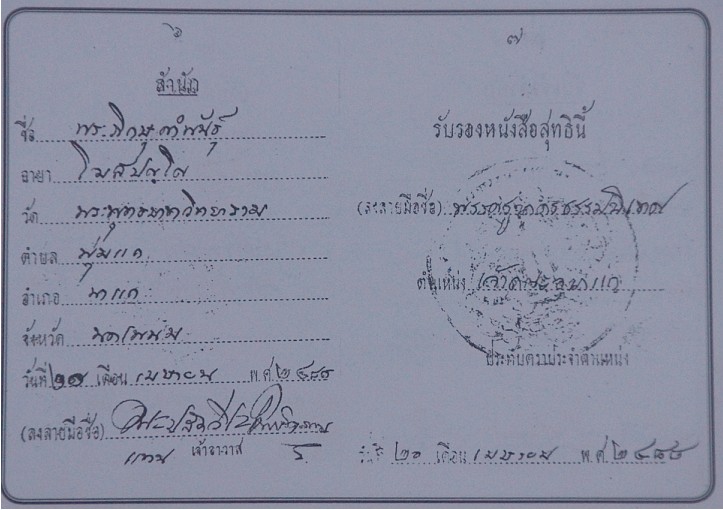 ๖
สำนัก
ชื่อ พระภิกษุคำพันธุ์
ฉายา โฆสปญฺโญ
วัด พระพุทธบาทวิทยาราม
ตำบล พุ่มแก
อำเภอ นาแก
จังหวัด นครพนม
วันที่ ๒๑ เดือน เมษายน พ.ศ. ๒๔๘๘
(ลงลายมือชื่อ)
แทน เจ้าอาวาส
๗
รับรองหนังสือสุทธินี้
(ลงลายมือชื่อ)
ตำแหน่ง เจ้าคณะ
ประทับตราประจำตำแหน่ง
วันที่ ๒๑ เดือน เมษายน พ.ศ. ๒๔๘๘